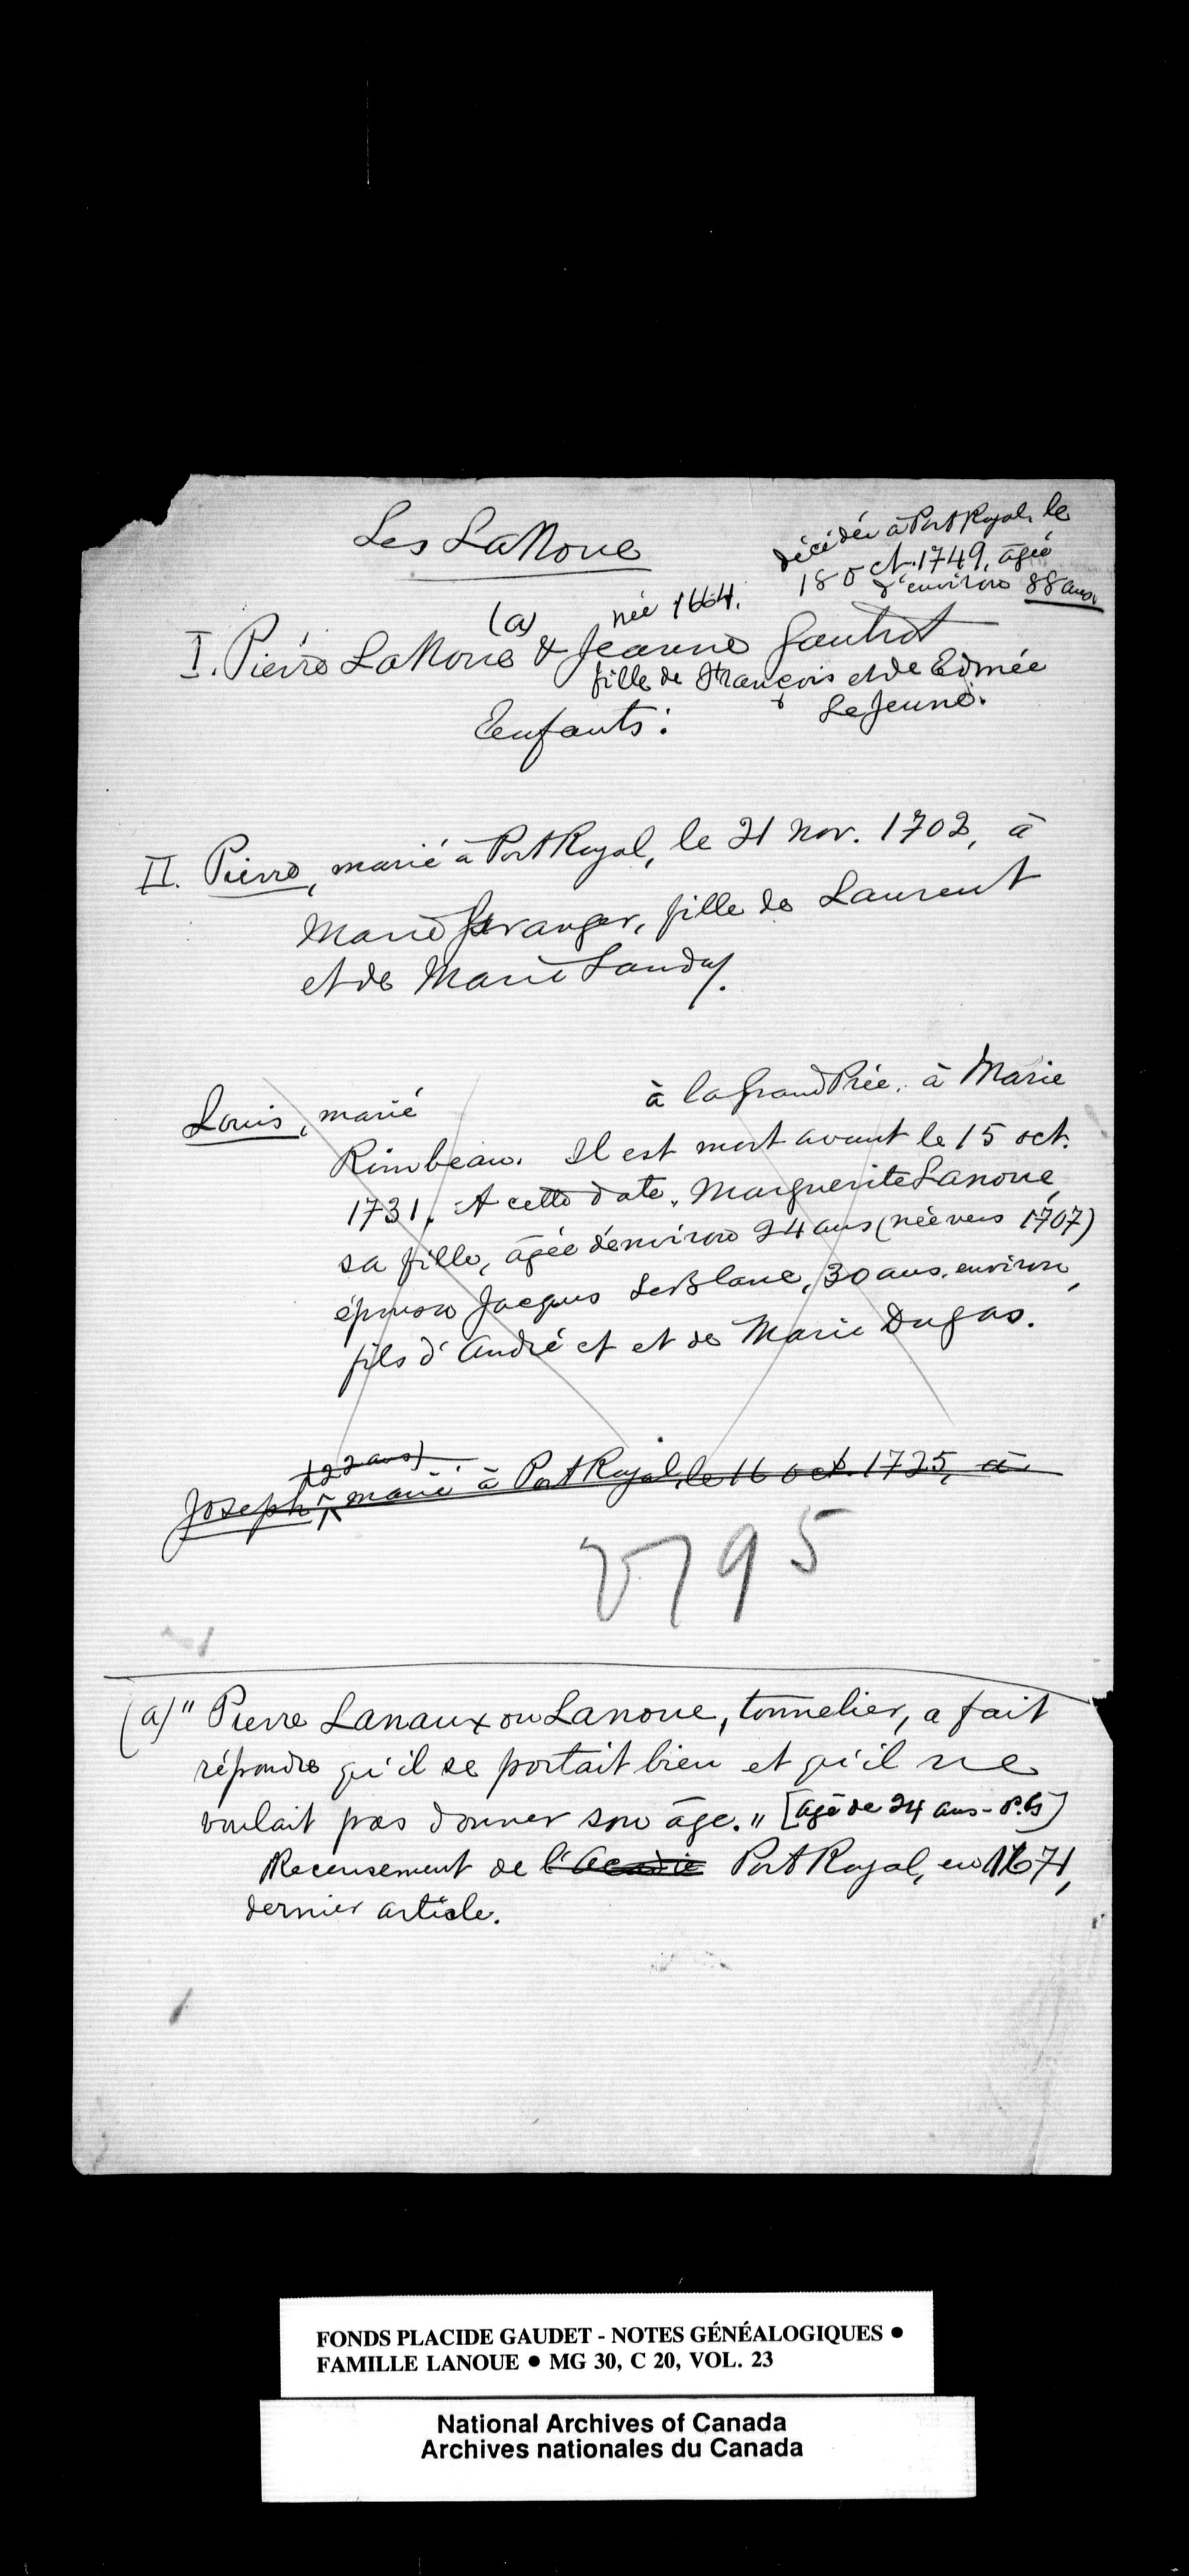 Les LaNoue
décédée à Port Royal, le
18 oct. 1749, âgée
d'environ 88 ans.
(a) née 1664.
I. Pierre LaNoue & Jeanne Gautrot
fille de François et de Edmée
LeJeune.
Enfants:
II. Pierre, marié à Port Royal, le 21 Nov. 1702, à
Marie Granger, fille de Laurent
et de Marie Landry.
Louis, marié à la Grand Prée, à Marie
Rimbeau. Il est mort avant le 15 oct.
1731. A cette date, Marguerite Lanoue,
sa fille, âgée d'environ 24 ans (née vers 1707)
épousa Jacques LeBlanc, 30 ans environ,
fils d'André et et de Marie Dugas.
(22 ans)
Joseph, marié à Port Royal, le 16 oct. 1725, à
2795
(a) " Pierre Lanaux ou Lanoue, tonnelier, a fait
répondre qu'il se portait bien et qu'il ne
voulait pas donner son âge. " [âgé de 24 ans - P.G]
Recensement de l'Acadie Port Royal, en 1671,
dernier article.
FONDS PLACIDE GAUDET - NOTES GÉNÉALOGIQUES ●
FAMILLE LANOUE ● MG 30, C 20, VOL. 23
National Archives of Canada
Archives nationales du Canada